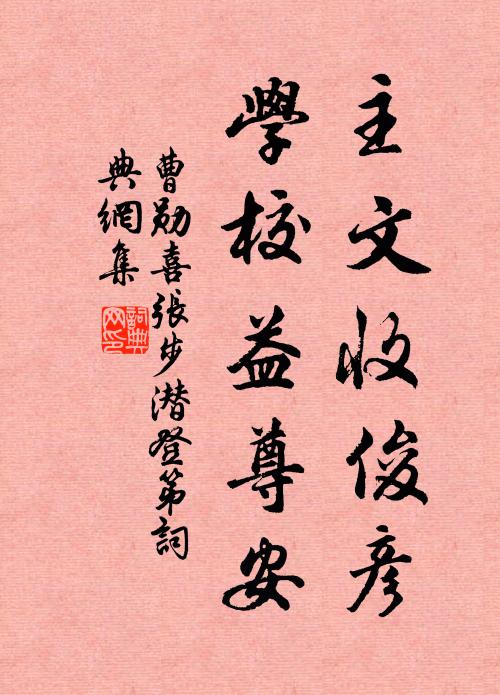 主文收俊彦
學校益尊安
曹勛喜張步潛登第詞
典網集
詞典网印